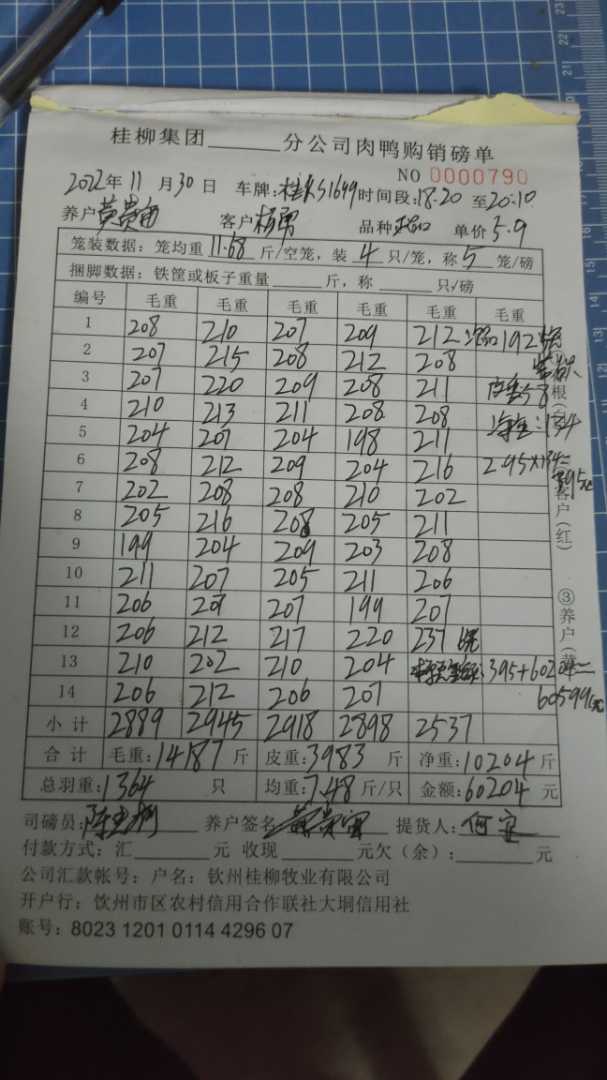 桂柳集团______分公司肉鸭购销磅单
NO 0000790
2022年11月30日 车牌: S1649 时间段:18.20 至20:10
养户黄贵宙 客户杨勇 品种 单价5.9
笼装数据:笼均重11.68斤/空笼,装4只/笼,称5笼/磅
捆脚数据:铁筐或板子重量______斤,称______只/磅
编号 毛重 毛重 毛重 毛重 毛重 毛重
1 208 210 207 209 212 192
2 207 215 208 212 208
3 207 220 209 208 211 皮重58
4 210 213 211 208 208 净重:134
5 204 207 204 198 211
6 208 212 209 204 216 2.95×134=395元
7 202 208 208 210 202
8 205 216 208 205 211
9 199 204 209 203 208
10 211 207 205 211 206
11 206 207 207 199 207
12 206 212 217 220 237
13 210 202 210 204 395+60204=
14 206 212 206 207 60599元
小计 2889 2945 2918 2898 2537
合计 毛重:14187斤 皮重:3983斤 净重:10204斤
总羽重:1364只 均重:7.48斤/只 金额:60204元
司磅员: 养户签名黄贵宙 提货人:何宜
付款方式:汇______元 收现______元欠(余):______元
公司汇款帐号:户名:钦州桂柳牧业有限公司
开户行:钦州市区农村信用合作联社大垌信用社
账号:8023 1201 0114 4296 07
客户(红)
③养户